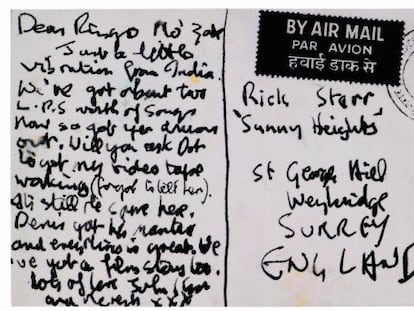 Dear Ringo Mo' Zak
Just a little
vibration from India.
We've got about two
L.P.S worth of songs
now so get yer drums
out. Will you ask Dot
to get my video tape
working (forgot to tell her).
It's still the same here.
Denis got his mantra
and everything is great. We
've got a film story too.
Lots of love John
and xxx
BY AIR MAIL
PAR AVION
हवाई डाक से
Rick Starr
'Sunny Heights'
St George Hill
Weybridge
SURREY
ENGLAND